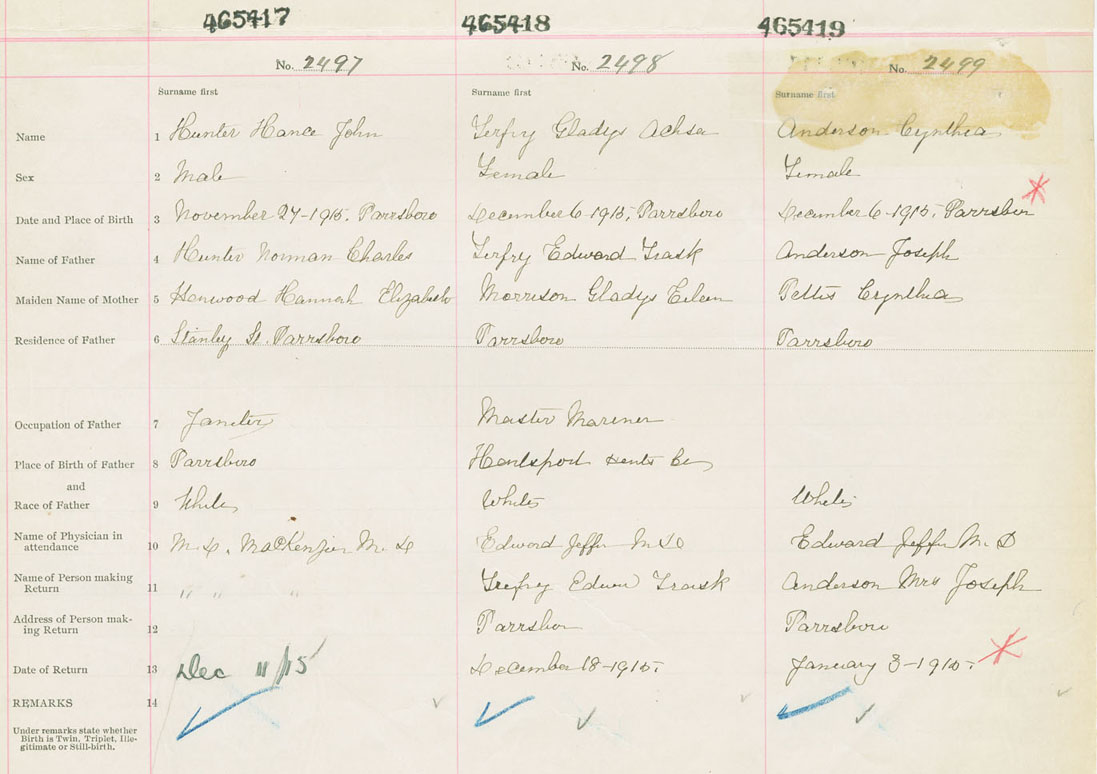 465417 465418 465419
No. 2497 No. 2498 No. 2499
Surname first Surname first Surname first
Name 1 Hunter Hance John Terfry Gladys Achsa Anderson Cynthia
Sex 2 Male Female Female
Date and Place of Birth 3 November 27-1915, Parrsboro December 6-1915, Parrsboro December 6-1915, Parrsboro
Name of Father 4 Hunter Norman Charles Terfry Edward Trask Anderson Joseph
Maiden Name of Mother 5 Henwood Hannah Elizabeth Morrison Gladys Eileen Pettis Cynthia
Residence of Father 6 Stanley St. Parrsboro Parrsboro Parrsboro
Occupation of Father 7 Janitor Master Mariner
Place of Birth of Father 8 Parrsboro Hantsport Hants Co
and
Race of Father 9 White White White
Name of Physician in
attendance 10 M. D. MacKenzie M. D Edward Jeffers M D Edward Jeffers M. D
Name of Person making
Return 11 " " " Trask Anderson Mrs Joseph
Address of Person mak-
ing Return 12 Parrsboro Parrsboro
Date of Return 13 Dec 11/15 December 18-1915. January 3-1915.
REMARKS 14
Under remarks state whether
Birth is Twin, Triplet, Ille-
gitimate or Still-birth.